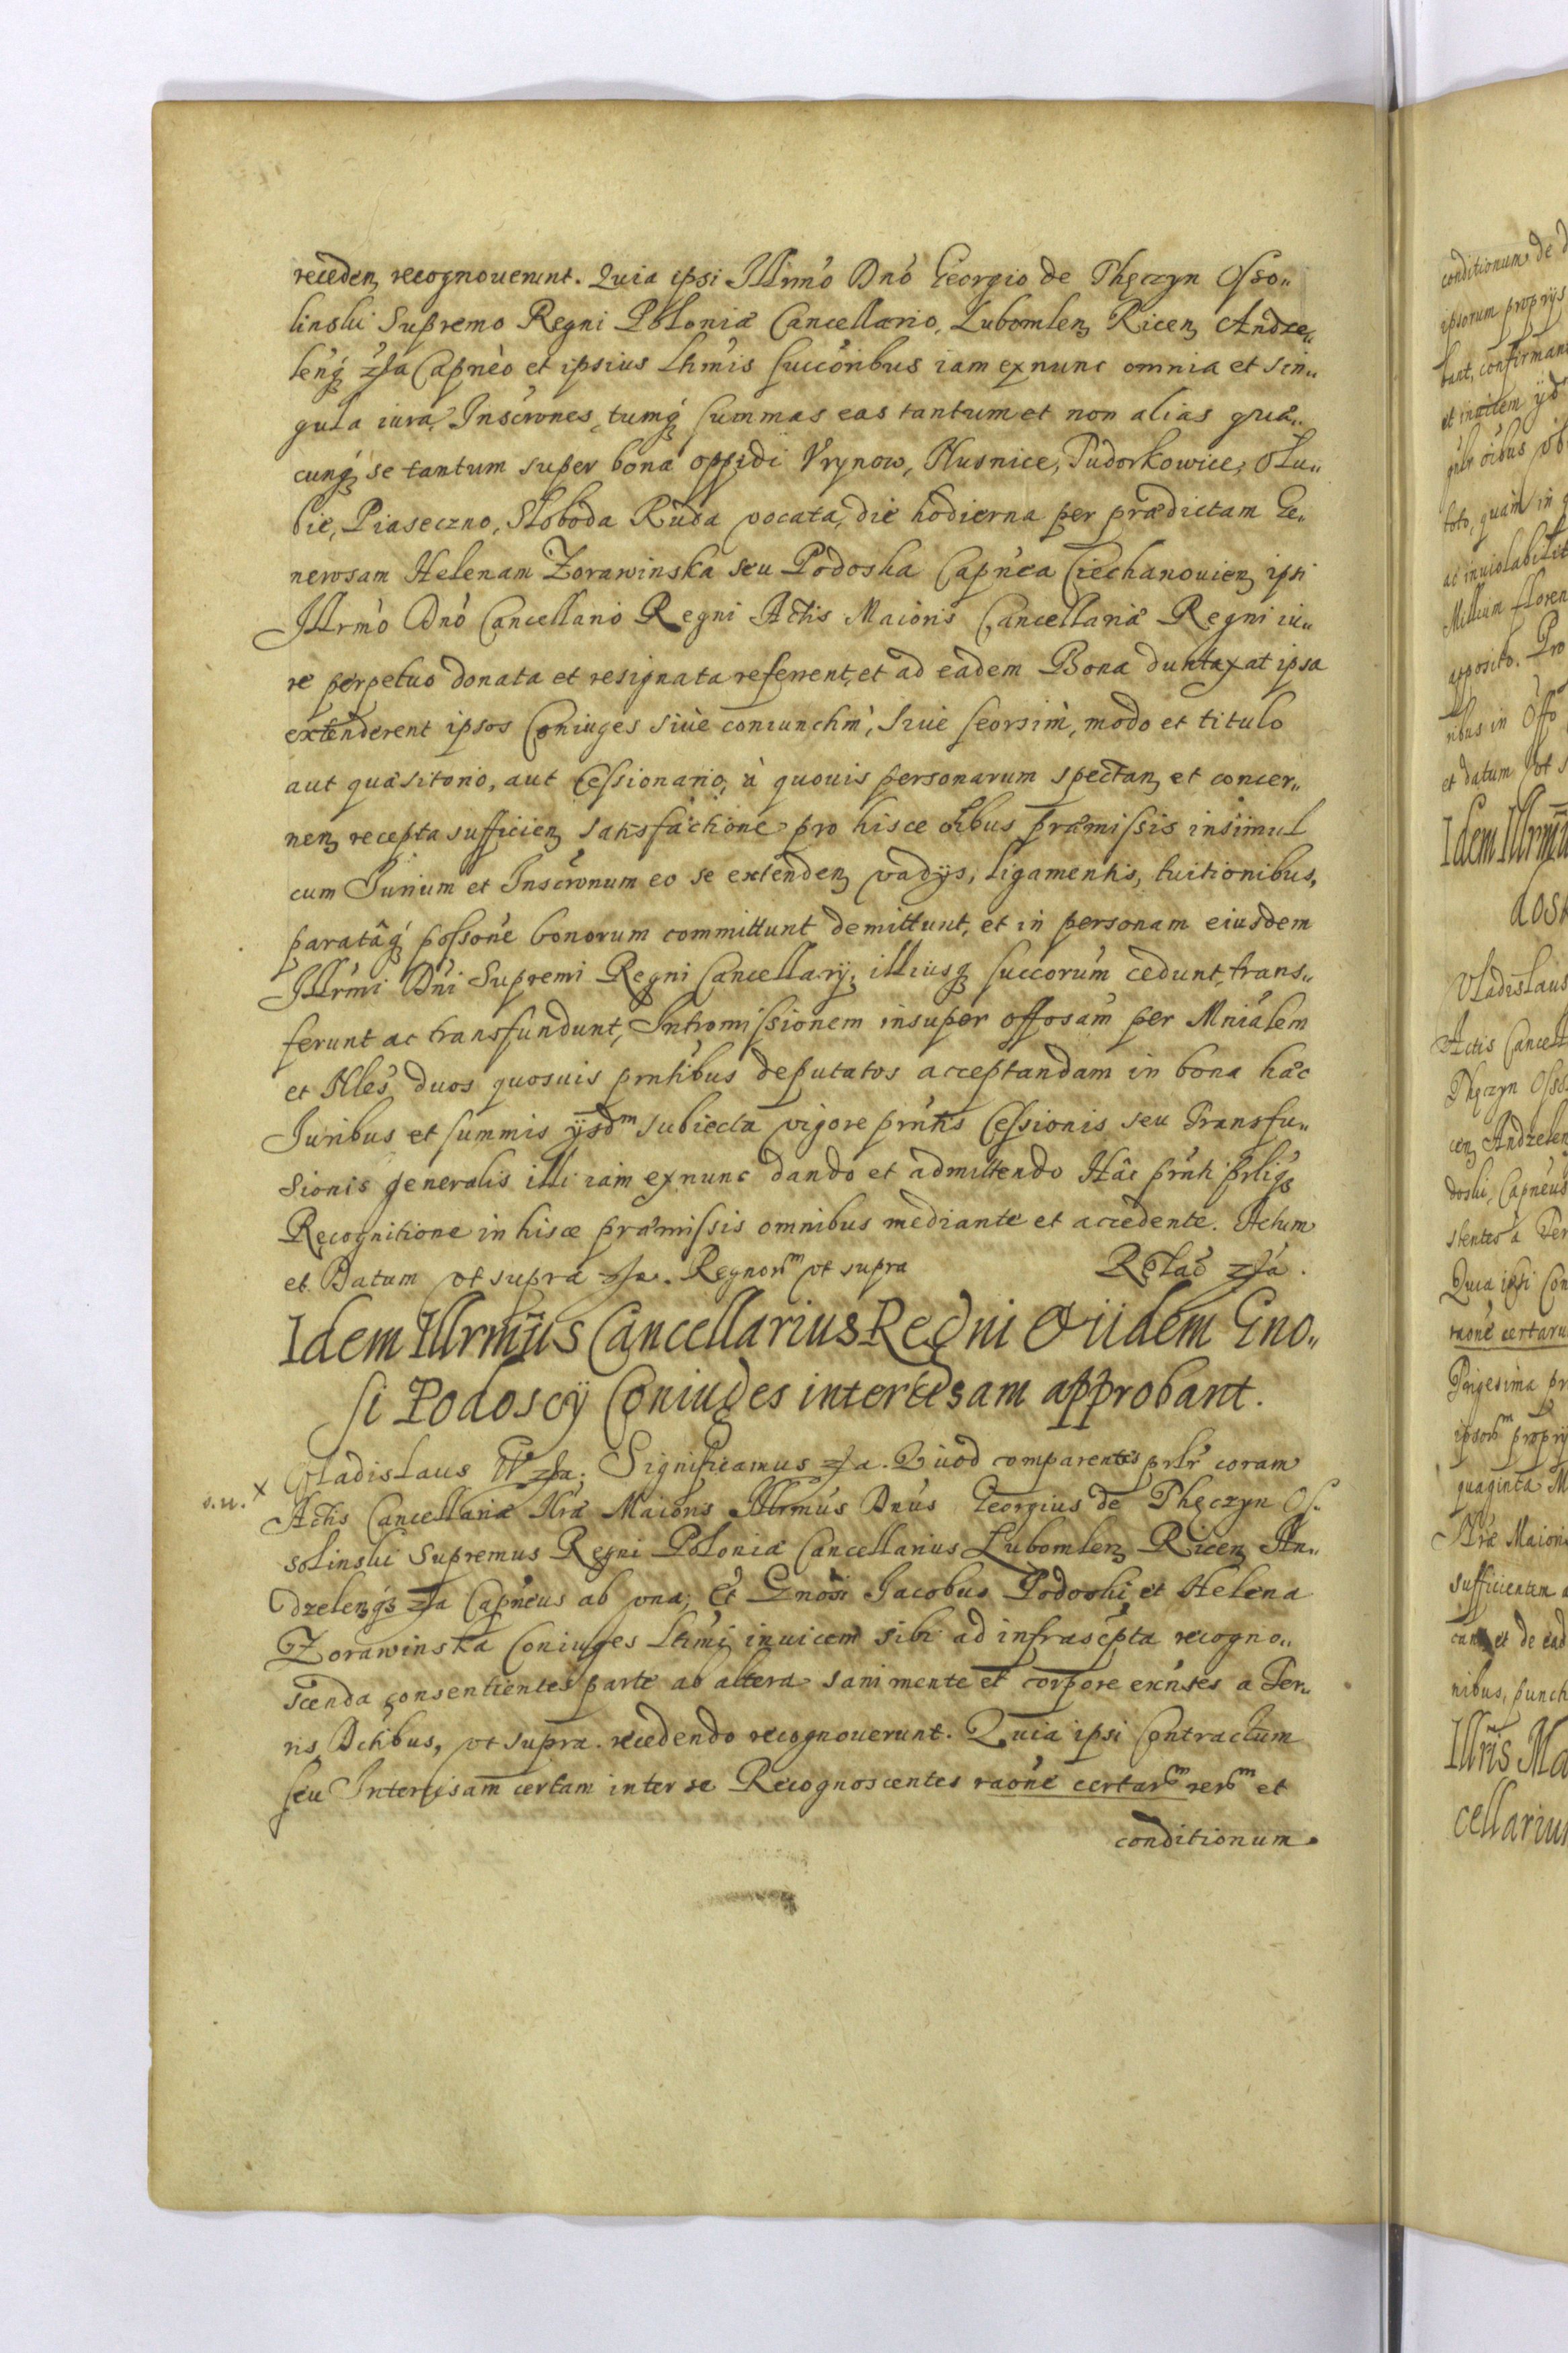 receden recognouerunt. Quia ipsi Illrmo Dno Georgio de Thęczyn Osso„
linski Supremo Regni Poloniæ Cancellario, Lubomlen Ricen Andze„
lenq́ zła Capneo et ipsius Ltimis succoribus iam exnunc omnia et sin„
gula iura, Inscrones, tumq́ summas eas tantum et non alias quæ„
cunq́ se tantum super bona oppidi Vrynow, Husnice, Tudorkowice, Olu„
bie, Piaseczno, Słoboda Ruda vocata, die hodierna per prædictam Ge„
nerosam Helenam Zorawinska seu Podoska Capnea Ciechanouien ipsi
Illrmo Dno Cancellario Regni Actis Maioris Cancellariæ Regni iu„
re perpetuo donata et resignata referrent, et ad eadem Bona duntaxat ipsa
extenderent ipsos Coniuges siue coniunctim, siue seorsim, modo et titulo
aut quæsitorio, aut Cessionario, à quouis personarum spectan et concer„
nen recepta sufficien satisfactione pro hisce oibus præmissis insimul
cum Iurium et Inscronum eo se extenden vadijs, ligamentis, tuitionibus,
paratâq́ possone bonorum committunt demittunt, et in personam eiusdem
Illrmi Dni Supremi Regni Cancellarij, illiusq́ succorum cedunt, trans„
ferunt ac transfundunt, Intromissionem insuper offosam per Mnialem
et Nles duos quosuis prntibus deputatos acceptandam in bona hæc
Iuribus et summis ijsdm subiecta vigore prntis Cessionis seu Transfu„
sionis generalis illi iam exnunc dando et admittendo Hâc prnti prliq́
Recognitione in hisce præmissis omnibus mediante et accedente. Actum
et Datum vt supra zła. Regnorm vt supra Relaõ zła.
Idem Illrmus Cancellarius Regni & iidem Gno„
si Podoscÿ Coniuges intercisam approbant.
s.u. x Vladislaus IV zła. Significamus zła. Quod comparentes prlr coram
Actis Cancellariæ Nræ Maioris Illrmus Dnus Georgius de Thęczyn Os„
solinski Supremus Regni Poloniæ Cancellarius Lubomlen Ricen An„
dzelenq́ zła Capneus ab vna, Et Gnosi Jacobus Podoski et Helena
Zorawinska Coniuges Ltimi inuicem sibi ad infrascpta recogno„
scenda consentientes parte ab altera sani mente et corpore exñtes a Ter„
ris Dctibus, vt supra recedendo recognouerunt. Quia ipsi Contractum
seu Intercisam certam inter se Recognoscentes raone certarm rerm et
conditionum